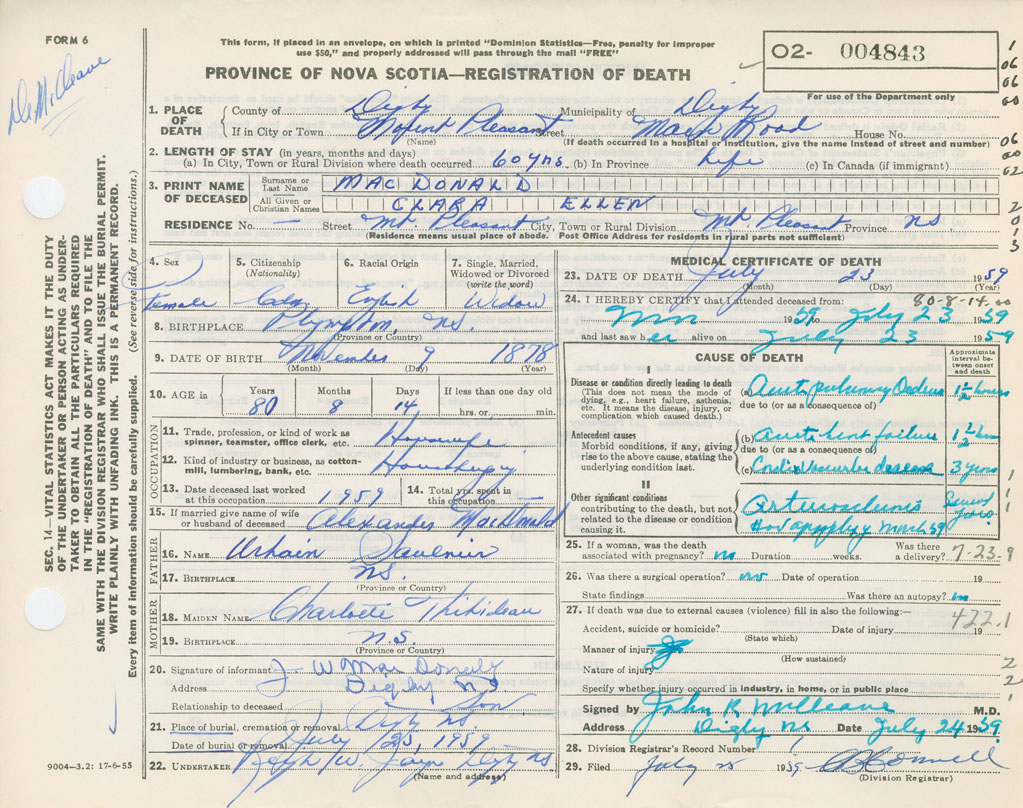 FORM 6
This form, if placed in an envelope, on which is printed "Dominion Statistics—Free, penalty for improper
use $50," and properly addressed will pass through the mail "FREE"
PROVINCE OF NOVA SCOTIA—REGISTRATION OF DEATH
02- 004843
For use of the Department only
Dr McCleave
SEC. 14—VITAL STATISTICS ACT MAKES IT THE DUTY
OF THE UNDERTAKER OR PERSON ACTING AS UNDER-
TAKER TO OBTAIN ALL THE PARTICULARS REQUIRED
IN THE "REGISTRATION OF DEATH" AND TO FILE THE
SAME WITH THE DIVISION REGISTRAR WHO SHALL ISSUE THE BURIAL PERMIT.
WRITE PLAINLY WITH UNFADING INK. THIS IS A PERMANENT RECORD.
Every item of information should be carefully supplied. (See reverse side for instructions.)
1. PLACE OF DEATH
County of Digby Municipality of Digby
If in City or Town Mount Pleasant Street Main Road House No.
(Name) (If death occurred in a hospital or institution, give the name instead of street and number)
2. LENGTH OF STAY (in years, months and days)
(a) In City, Town or Rural Division where death occurred 60 yrs. (b) In Province Life (c) In Canada (if immigrant)
3. PRINT NAME OF DECEASED
Surname or Last Name MAC DONALD
All Given or Christian Names CLARA ELLEN
RESIDENCE No. — Street Mt. Pleasant City, Town or Rural Division Mt. Pleasant Province N.S.
(Residence means usual place of abode. Post Office Address for residents in rural parts not sufficient)
4. Sex
Female
5. Citizenship
(Nationality)
Cdn
6. Racial Origin
English
7. Single, Married,
Widowed or Divorced
(write the word)
Widow
8. BIRTHPLACE Plympton, N.S.
(Province or Country)
9. DATE OF BIRTH November 9 1878
(Month) (Day) (Year)
10. AGE in Years Months Days If less than one day old
80 8 14 hrs. or min.
OCCUPATION
11. Trade, profession, or kind of work as
spinner, teamster, office clerk, etc. Housewife
12. Kind of industry or business, as cotton-
mill, lumbering, bank, etc. Housekeeping
13. Date deceased last worked
at this occupation 1959
14. Total yrs. spent in
this occupation —
15. If married give name of wife
or husband of deceased Alexander MacDonald
FATHER
16. NAME Urbain
17. BIRTHPLACE N.S.
(Province or Country)
MOTHER
18. MAIDEN NAME Charlotte Thibideau
19. BIRTHPLACE N.S.
(Province or Country)
20. Signature of informant J W MacDonald
Address Digby NS
Relationship to deceased Son
21. Place of burial, cremation or removal Digby NS
Date of burial or removal July 25, 1959
22. UNDERTAKER Ralph W. Digby NS
(Name and address)
9004-3.2: 17-6-55
MEDICAL CERTIFICATE OF DEATH
23. DATE OF DEATH July 23 1959
(Month) (Day) (Year)
80-8-14.00
24. I HEREBY CERTIFY that I attended deceased from:
1959 to July 23 1959
and last saw her alive on July 23 1959
CAUSE OF DEATH
Approximate
interval be-
tween onset
and death
I
Disease or condition directly leading to death
(This does not mean the mode of
dying, e.g., heart failure, asthenia,
etc. It means the disease, injury, or
complication which caused death.)
(a) Acute pulmonary Oedema 1½ hours
due to (or as a consequence of)
Antecedent causes
Morbid conditions, if any, giving
rise to the above cause, stating the
underlying condition last.
(b) Acute heart failure 1½ hrs
due to (or as a consequence of)
(c) Cardiovascular disease 3 years
II
Other significant conditions
contributing to the death, but not
related to the disease or condition
causing it.
Arteriosclerosis Several years
Had apoplexy March 59
25. If a woman, was the death
associated with pregnancy? no Duration weeks. Was there
a delivery?
7-23-9
26. Was there a surgical operation? no Date of operation 19
State findings Was there an autopsy? no
27. If death was due to external causes (violence) fill in also the following:—
422.1
Accident, suicide or homicide? Date of injury 19
(State which)
Manner of injury
(How sustained)
Nature of injury
Specify whether injury occurred in industry, in home, or in public place
Signed by John R. McCleave M.D.
Address Digby NS Date July 24 1959
28. Division Registrar's Record Number
29. Filed July 25 1959
(Division Registrar)